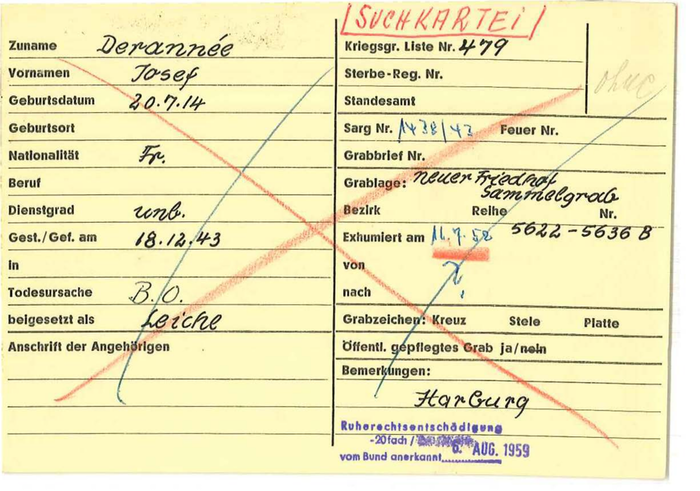 SUCHKARTEI
Zuname Derannée
Vornamen Josef
Geburtsdatum 20.7.14
Geburtsort
Nationalität Fr.
Beruf
Dienstgrad unb.
Gest./Gef. am 18.12.43
In
Todesursache B.O.
beigesetzt als Leiche
Anschrift der Angehörigen
Kriegsgr. Liste Nr. 479
Sterbe-Reg. Nr.
ohne
Standesamt
Sarg Nr. 1438/43 Feuer Nr.
Grabbrief Nr.
Grablage: neuer Friedhof
Sammelgrab
Bezirk Reihe Nr.
5622-5636 B
Exhumiert am 11.7.58
von
nach
Grabzeichen: Kreuz Stele Platte
Öffentl. gepflegtes Grab ja/nein
Bemerkungen:
Harburg
Ruherechtsentschädigung
-20fach/
6. AUG. 1959
vom Bund anerkannt